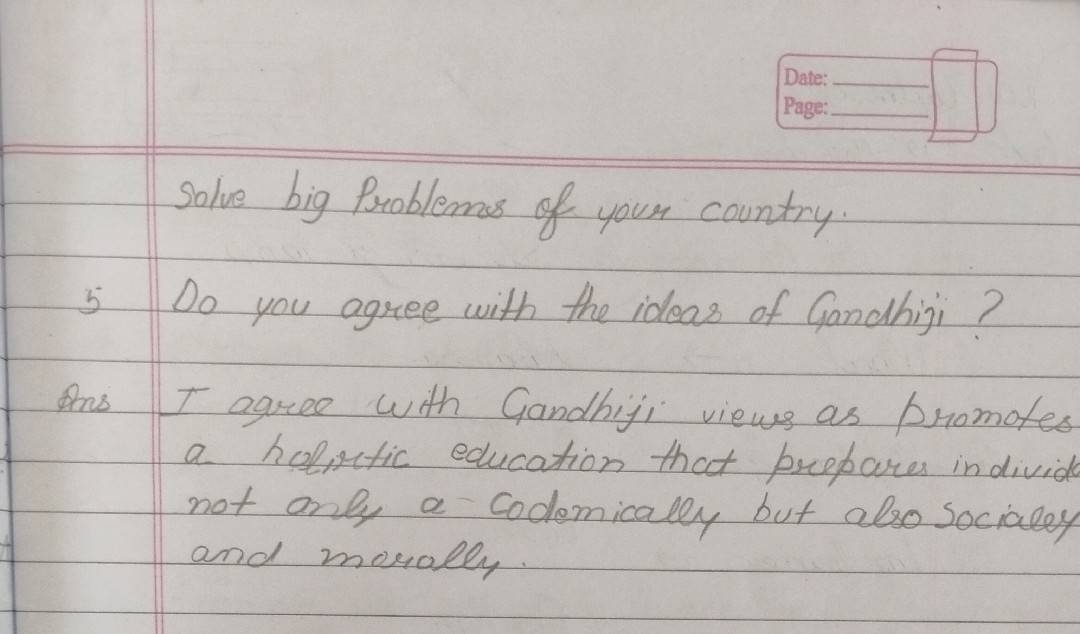 Date:
Page:
Solve big Problems of your country.
5 Do you agree with the ideas of Gandhiji ?
Ans I agree with Gandhiji views as promotes
a holistic education that prepares individ
not only a codemically but also socialey
and morally.